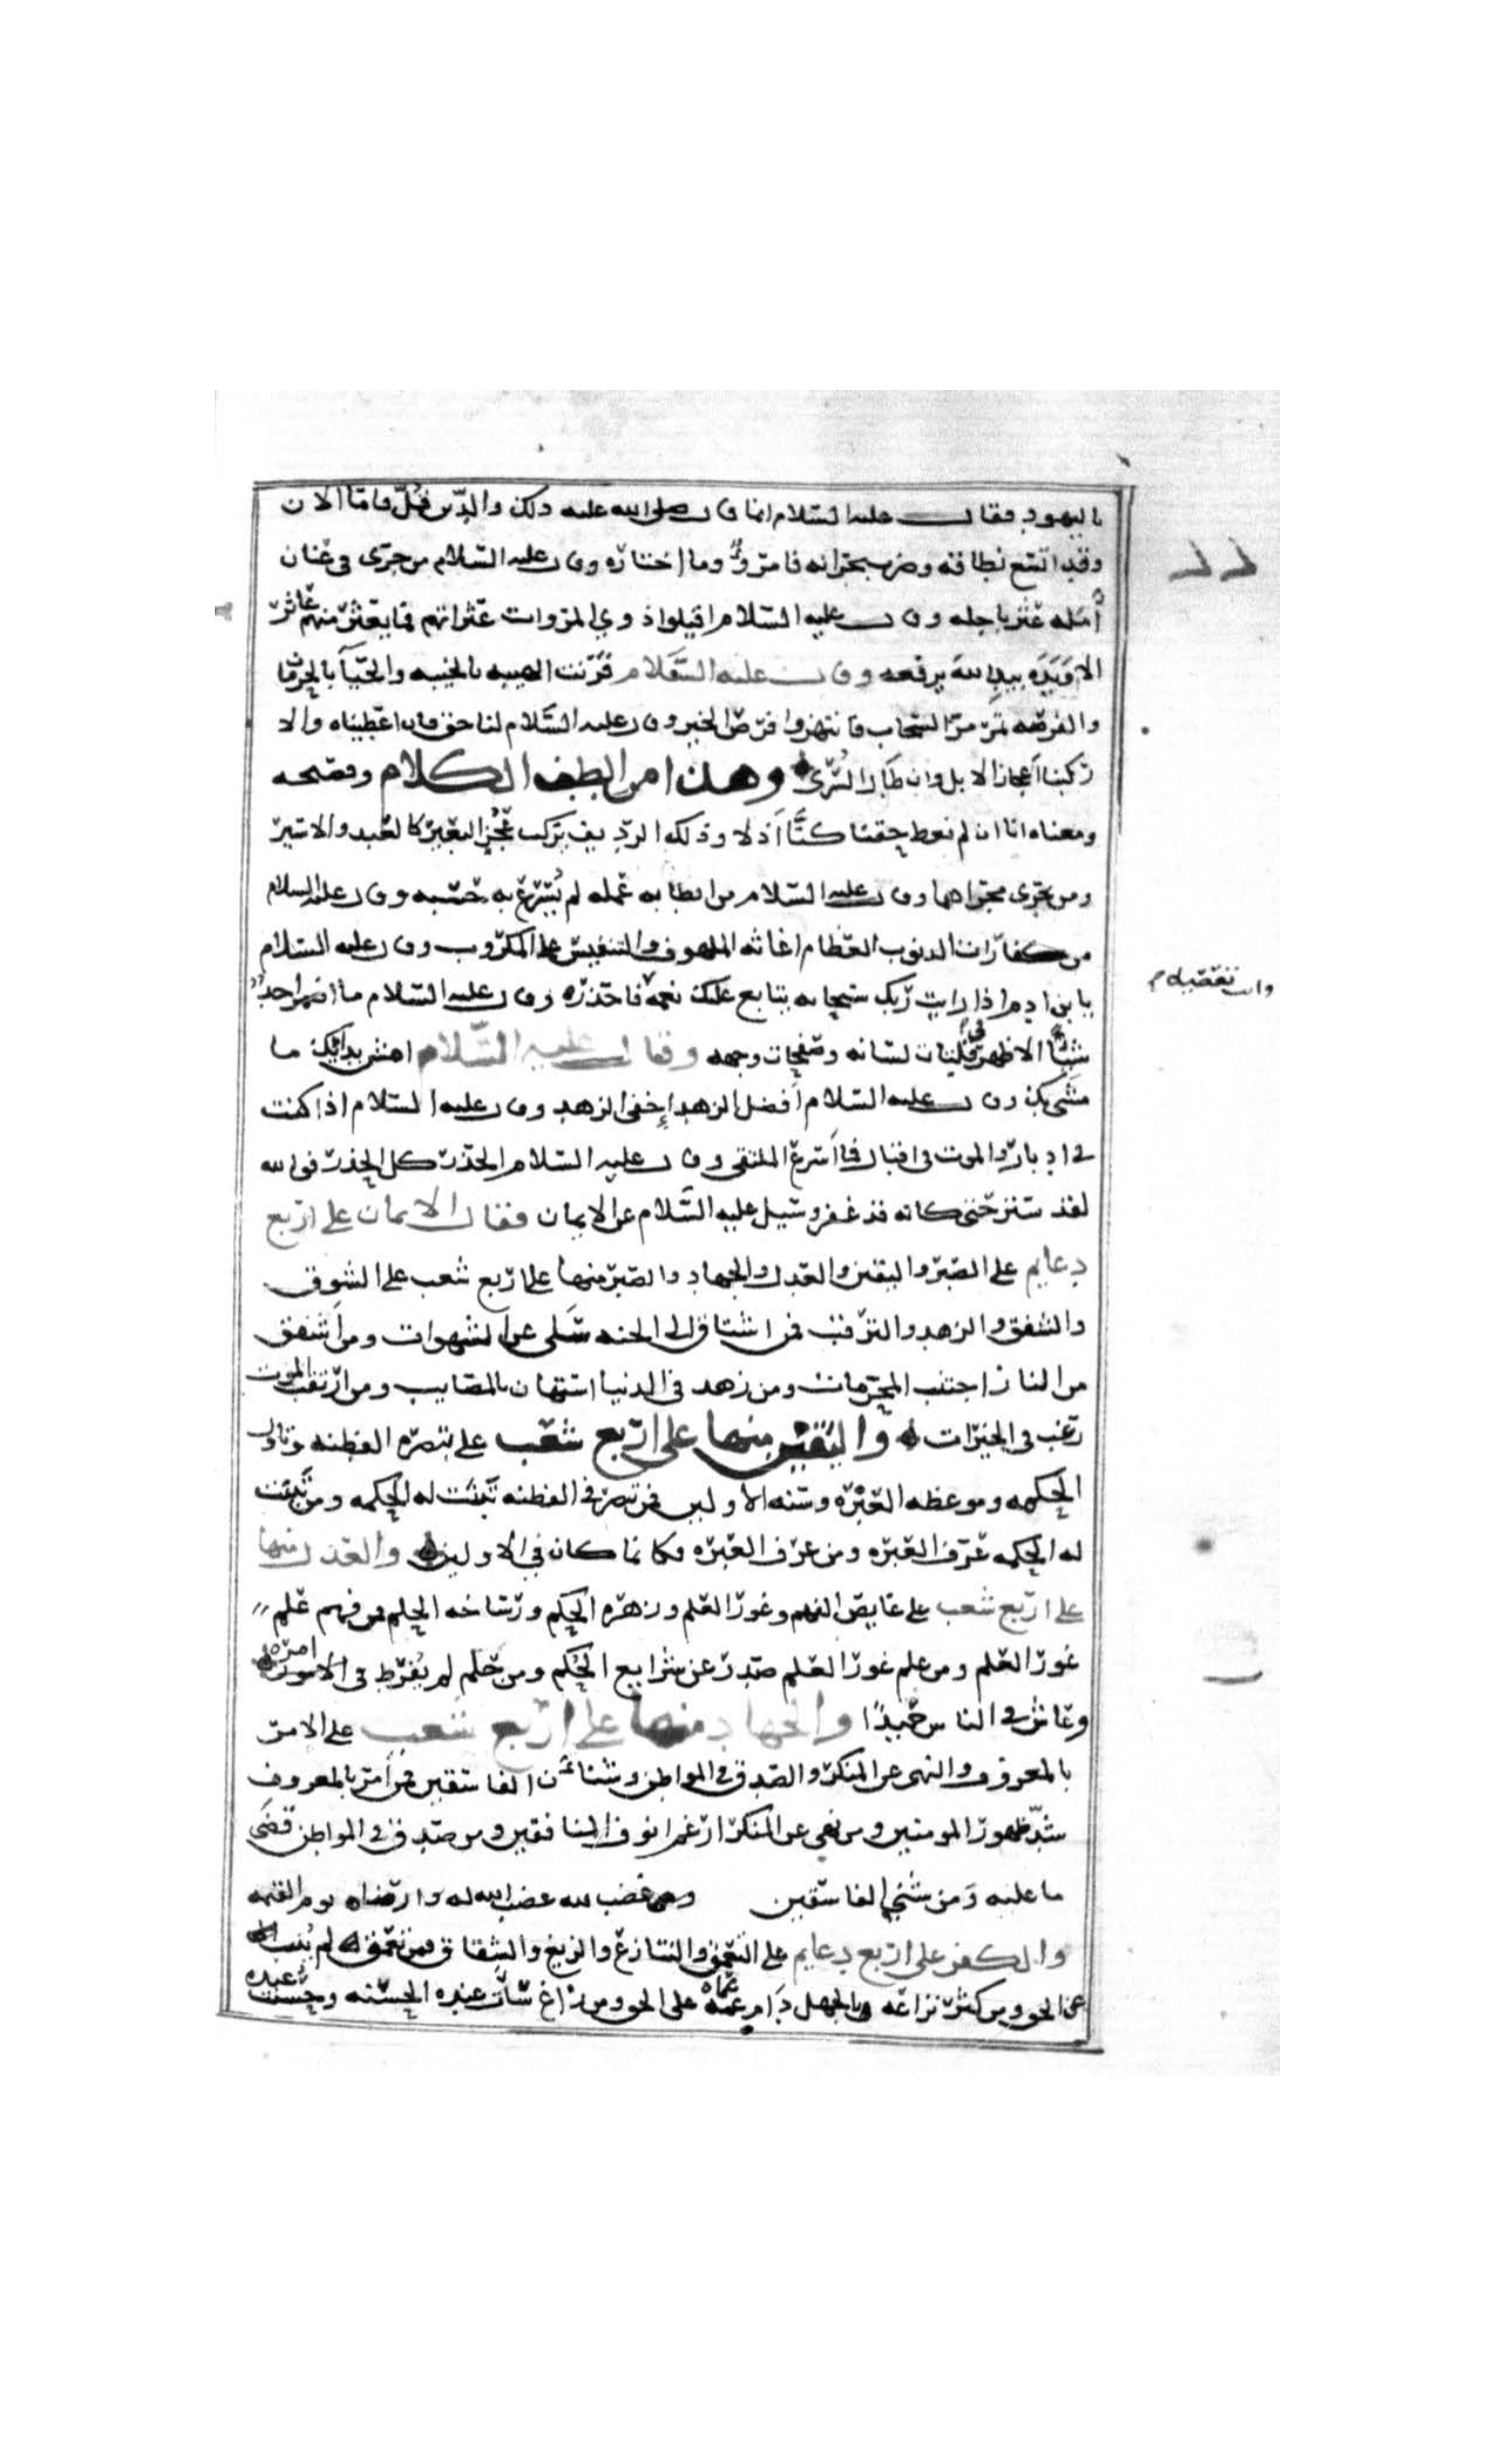 باليهود فقال عليه السلام انما قال صلى الله عليه ذلك والدين قل فاما الان
وقد اتسع نطاقه وضرب بجرانه فامرو وما اختاره وقال عليه السلام من جرى في عنان
أمله عثر باجله وقال عليه السلام اقيلوا ذوي المروات عثراتهم فما يعثر منهم عاثر
الا ويده بيد الله يرفعه وقال عليه السلام قرنت الهيبه بالخيبه والحيآ بالحرمان
والفرصه تمر مر السحاب فانتهزوا فرص الخير وقال عليه السلام لنا حق فان اعطيناه والا
ركبنا أعجاز الابل وان طال السرى وهذا من الطف الكلام وفصحه
ومعناه انا ان لم نعط حقنا كنا أذلا وذلك الرديف يركب عجز البعير كالعبد والاسير
ومن يجري مجراهما وقال عليه السلام من ابطا به عمله لم يسرع به حسبه وقال عليه السلام
من كفارات الذنوب العظام اغاثه الملهوف والتنفيس على المكروب وقال عليه السلام
يا بن ادم اذا رايت ربك سبحانه يتابع عليك نعمه فاحذره وقال عليه السلام ما اضمر احد
وانت تعصيه م
شيئا الا ظهر في فلتات لسانه وصفحات وجهه وقال عليه السلام امش بدائك ما
مشى بك وقال عليه السلام أفضل الزهد إخفى الزهد وقال عليه السلام اذا كنت
في ادبار والموت في اقبال فما أسرع الملتقى وقال عليه السلام الحذر كل الحذر فو الله
لقد ستر حتى كانه قد غفر وسيل عليه السلام عن الايمان فقال الايمان على اربع
دعايم على الصبر واليقين والعدل والجهاد والصبر منها على اربع شعب على الشوق
والشفق والزهد والترقب فمن اشتاق الى الجنه سلى عن الشهوات ومن أشفق
من النار اجتنب المحرمات ومن زهد في الدنيا استهان بالمصايب ومن ارتقب الموت
رغب في الخيرات واليقين منها على اربع شعب على تبصره الفطنه وتاول
الحكمه وموعظه العبره وسنه الاولين فمن تبصر في الفطنه تبينت له الحكمه ومن تبينت
له الحكمه عرف العبره ومن عرف العبره فكانما كان في الاولين والعدل منها
على اربع شعب على غايص الفهم وغور العلم وزهره الحكم ورساخه الحلم فمن فهم علم
غور العلم ومن علم غور العلم صدر عن شرايع الحكم ومن حلم لم يفرط في امره
وعاش في الناس حميدا والجهاد منها على اربع شعب على الامر
بالمعروف والنهى عن المنكر والصدق في المواطن وشنان الفاسقين فمن أمر بالمعروف
شد ظهور المومنين ومن نهى عن المنكر ارغم انوف المنافقين ومن صدق في المواطن قضى
ما عليه ومن شني الفاسقين وغضب لله غضب الله له وارضاه يوم القيمه
والكفر على اربع دعايم على التعمق والتنازع والزيغ والشقاق فمن تعمق لم ينب
عن الحق ومن كثر نزاعه بالجهل دام عماه على الحق ومن زاغ سأت عنده الحسنه وحسنت عنده